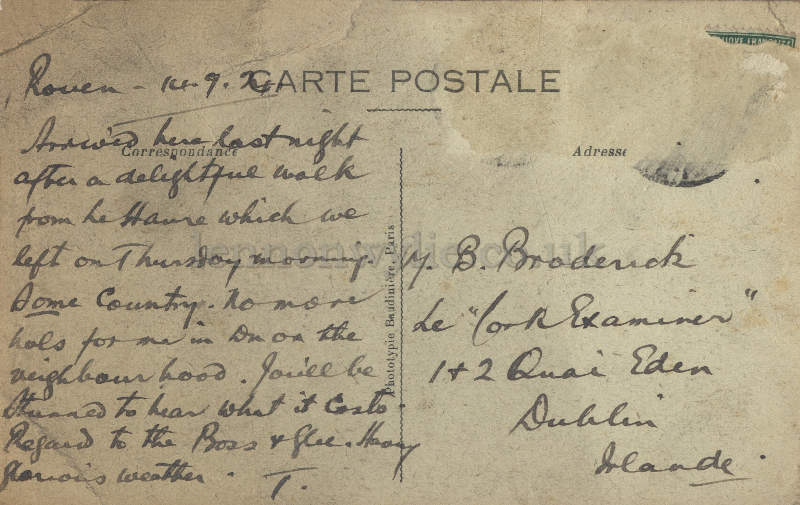 CARTE POSTALE
Rouen - 14.9.
Correspondance
Arrived here last night
after a delightful walk
from Le Havre which we
left on Thursday morning.
Some Country. No more
hols for me in or the
neighbourhood. You'll be
stunned to hear what it costs.
Regard to the Boss & Glee. Having
glorious weather.
T.
Phototypie Baudinière, Paris
Adresse
M. B. Broderick
Le "Cork Examiner"
1 + 2 Quai Eden
Dublin
Irlande.
lennonwylie.co.uk